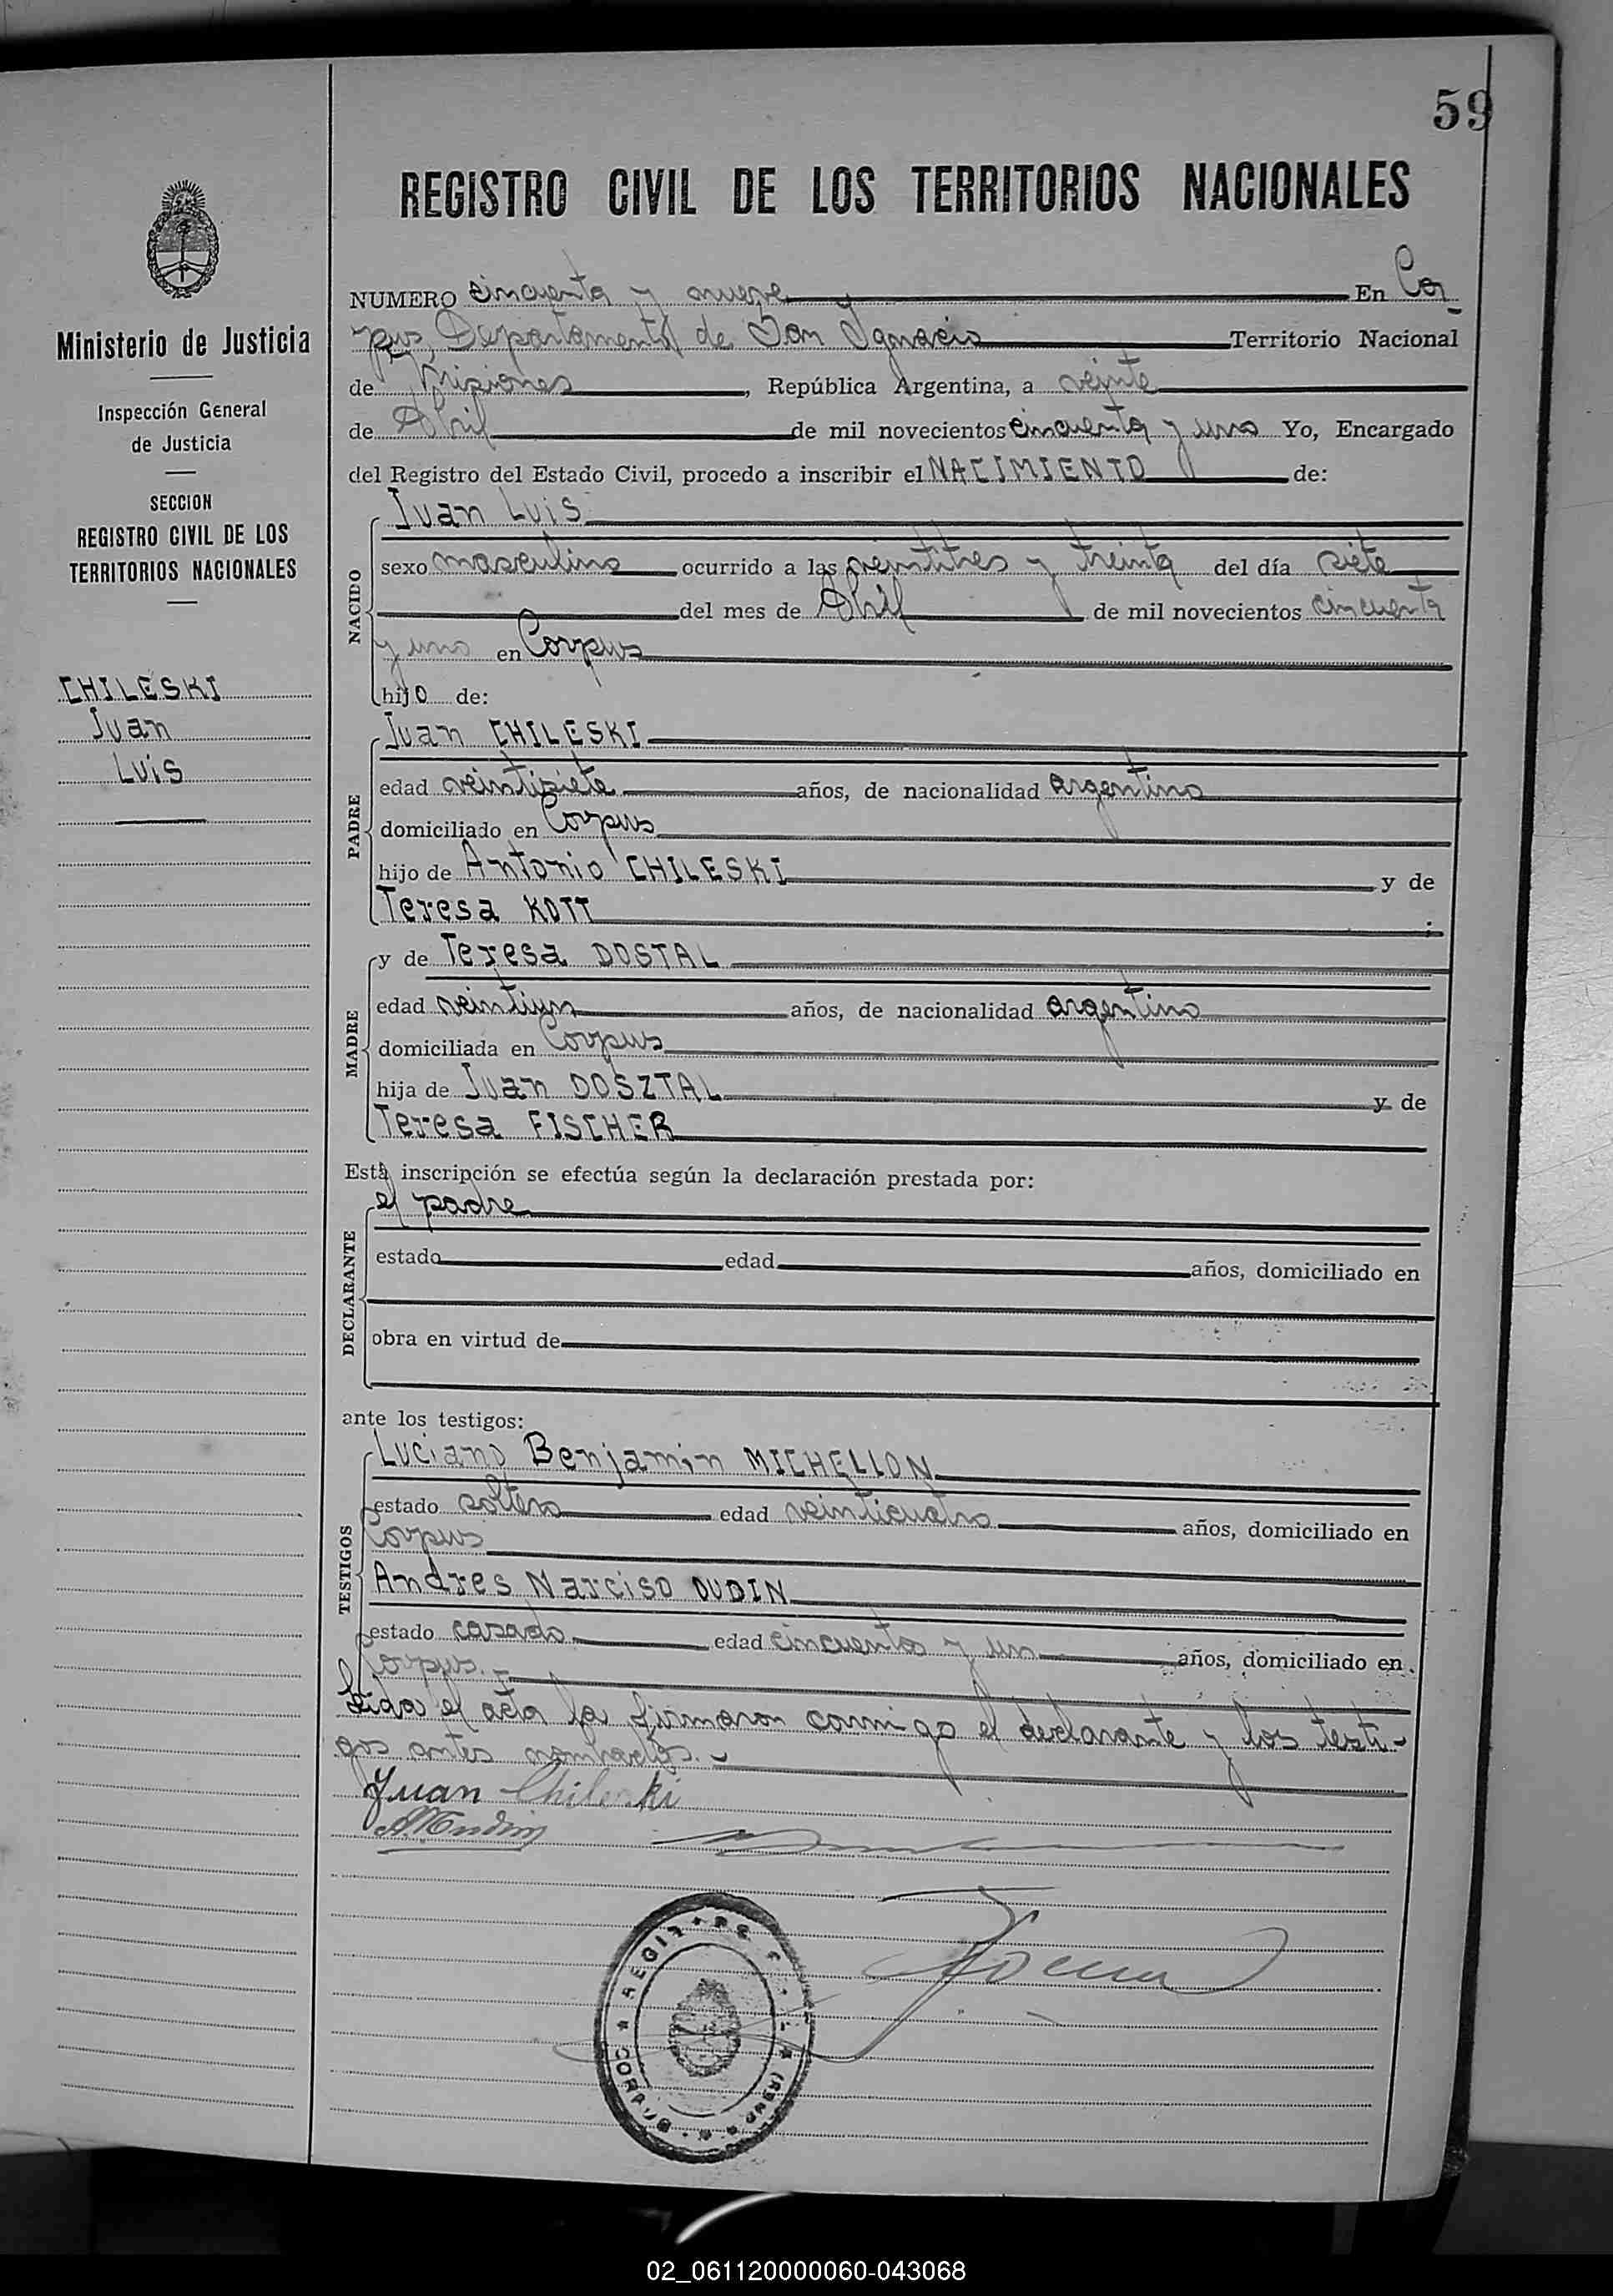 59
REGISTRO CIVIL DE LOS TERRITORIOS NACIONALES
Ministerio de Justicia
Inspección General
de Justicia
SECCION
REGISTRO CIVIL DE LOS
TERRITORIOS NACIONALES
CHILESKI
Juan
Luis
NUMERO cincuenta y nueve En Cor
pus, Departamento de San Ignacio Territorio Nacional
de Misiones, República Argentina, a veinte
de Abril de mil novecientos cincuenta y uno Yo, Encargado
del Registro del Estado Civil, procedo a inscribir el NACIMIENTO de:
NACIDO
Juan Luis
sexo masculino ocurrido a las veintitres y treinta del día siete
del mes de Abril de mil novecientos cincuenta
y uno en Corpus
hijo de:
PADRE
Juan CHILESKI
edad veintisiete años, de nacionalidad argentino
domiciliado en Corpus
hijo de Antonio CHILESKI y de
Teresa KOTT ;
MADRE
y de Teresa DOSTAL
edad veintiun años, de nacionalidad argentino
domiciliada en Corpus
hija de Juan DOSZTAL y de
Teresa FISCHER
Esta inscripción se efectúa según la declaración prestada por:
DECLARANTE
el padre
estado edad años, domiciliado en
obra en virtud de
ante los testigos:
TESTIGOS
Luciano Benjamin MICHELLON
estado soltero edad veinticuatro años, domiciliado en
Corpus
Andres Narciso OUDIN
estado casado edad cincuenta y un años, domiciliado en
Corpus.-
Leida el acta la firmaron conmigo el declarante y los testi-
gos antes nombrados.-
Juan Chileski
02_061120000060-043068